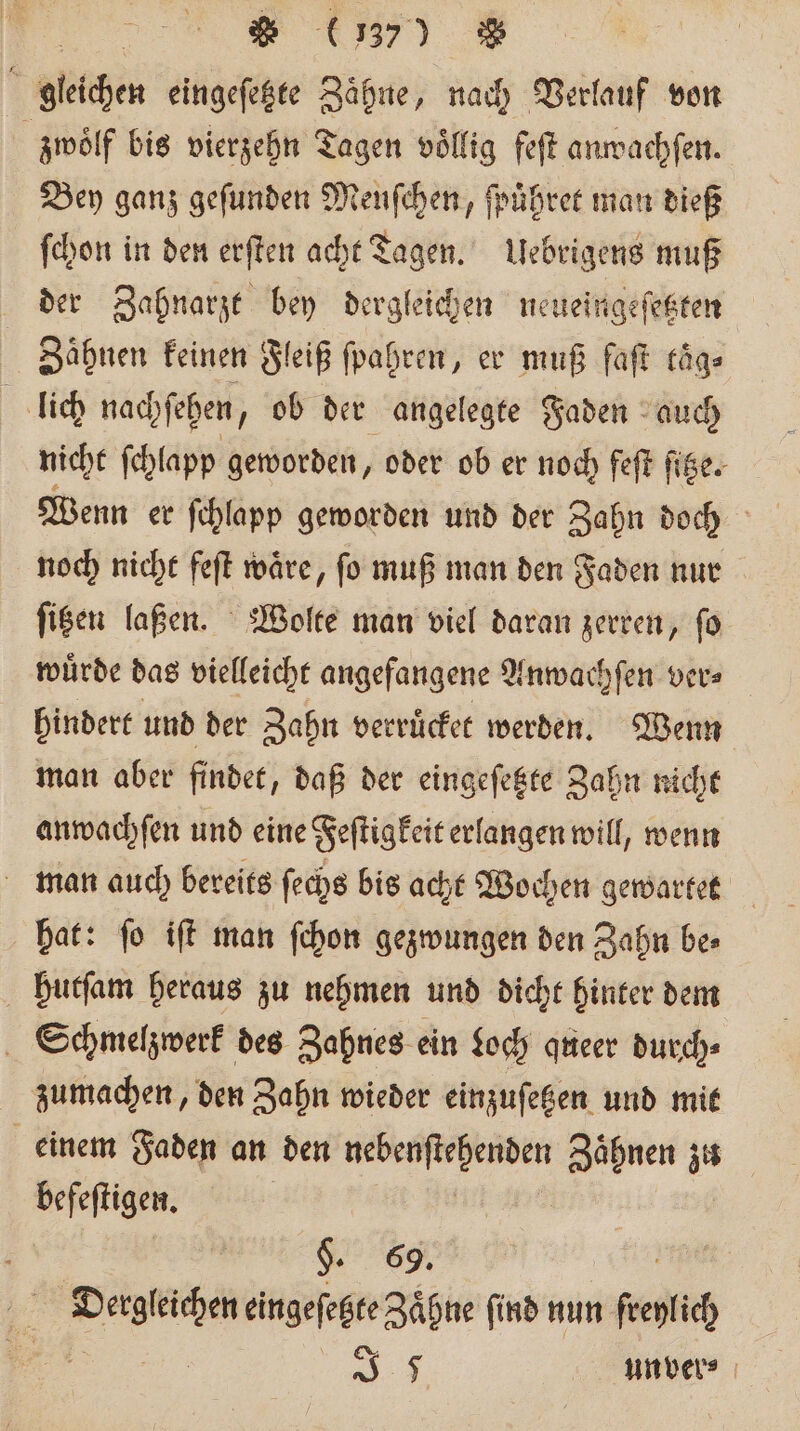 ❉ (137) ❉
gleichen eingeſetzte Zaͤhne, nach Verlauf von
zwoͤlf bis vierzehn Tagen voͤllig feſt anwachſen.
Bey ganz geſunden Menſchen, ſpuͤhret man dieß
ſchon in den erſten acht Tagen. Uebrigens muß
der Zahnarzt bey dergleichen neueingeſetzten
Zaͤhnen keinen Fleiß ſpahren, er muß faſt taͤg⸗
lich nachſehen, ob der angelegte Faden auch
nicht ſchlapp geworden, oder ob er noch feſt ſitze.
Wenn er ſchlapp geworden und der Zahn doch
noch nicht feſt waͤre, ſo muß man den Faden nur
ſitzen laßen. Wolte man viel daran zerren, ſo
wuͤrde das vielleicht angefangene Anwachſen ver⸗
hindert und der Zahn verruͤcket werden. Wenn
man aber findet, daß der eingeſetzte Zahn nicht
anwachſen und eine Feſtigkeit erlangen will, wenn
man auch bereits ſechs bis acht Wochen gewartet
hat: ſo iſt man ſchon gezwungen den Zahn be⸗
hutſam heraus zu nehmen und dicht hinter dem
Schmelzwerk des Zahnes ein Loch queer durch⸗
zumachen, den Zahn wieder einzuſetzen und mit
einem Faden an den nebenſtehenden Zaͤhnen zu
befeſtigen.
§. 69.
Dergleichen eingeſetzte Zaͤhne ſind nun freylich
J 5 unver⸗